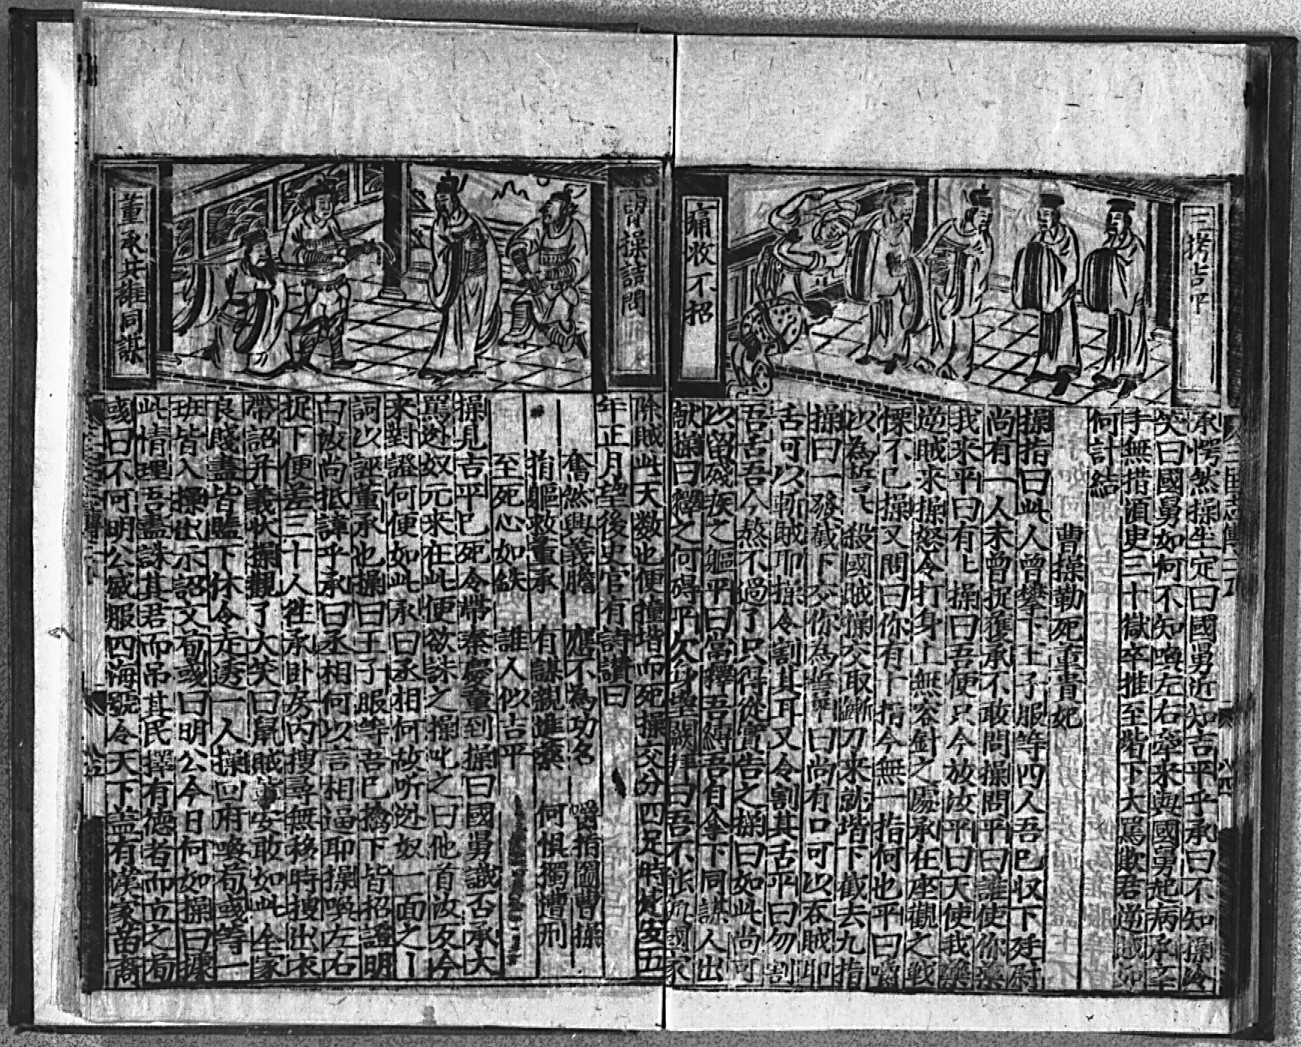 三拷吉平
痛收不招
承愕然操坐定曰國舅近知吉平乎承曰不知操冷
笑曰國舅如何不知喚左右牽來與國舅起病承
手無措須臾三十獄卒推至階下大罵欺君逆賊
何計結
曹操勒死董貴妃
操指曰此人曾攀下王子服等四人吾已収下廷尉
尚有一人未曾捉獲承不敢問操問平曰誰使你藥
我來平曰有上操曰吾便只今放汝平曰天使我藥
逆賊來操怒令打身上無容針之處承在座觀之戰
慄不已操又問曰你有十指今無一指何也平曰嚼
以為誓殺國賊操交取斬刀來就堦下截去九指
操曰一發截下交你為誓平曰尚有口可以吞賊
舌可以斬賊操令割其耳又令割其舌平曰勿割
吾舌吾今熬不過了只得從實告之操曰如此尚可
以留殘疾之軀平曰當釋吾縛吾自拿下同謀人出
獻操曰釋之何碍平欠身望闕拜曰吾不能為國家
曹操詰問
董承共誰同謀
除賊此天数也便撞堦而死操交分四足時建安五
年正月望後史官有詩讃曰
奮然興義膽 應不為功名 嚼指圖曹操
指軀救董承 有謀親進藥 何惧獨遭刑
至死心如鉄 誰人似吉平
操見吉平已死令帶秦慶童到操曰國舅識否承大
罵逃奴元來在此便欲誅之操叱之曰他首汝反今
來對證何便如此承曰丞相何故听逃奴一面之
詞以誣董承也操曰王子服等吾已擒下皆招證明
白故尚抵諱乎承曰丞相何以言相逼耶操喚左右
捉下便差三十人往承卧房內搜尋無移時搜出衣
帶詔并義狀操觀了大笑曰鼠賊董安敢如此全家
良賤盡皆監下休令走透一人操回府喚荀彧等一
班皆入操出示詔文荀彧曰明公今日何如操曰據
此情理吾盡誅其君而吊其民擇有德者而立之荀
彧曰不可明公威服四海號令天下盖有漢家苗裔